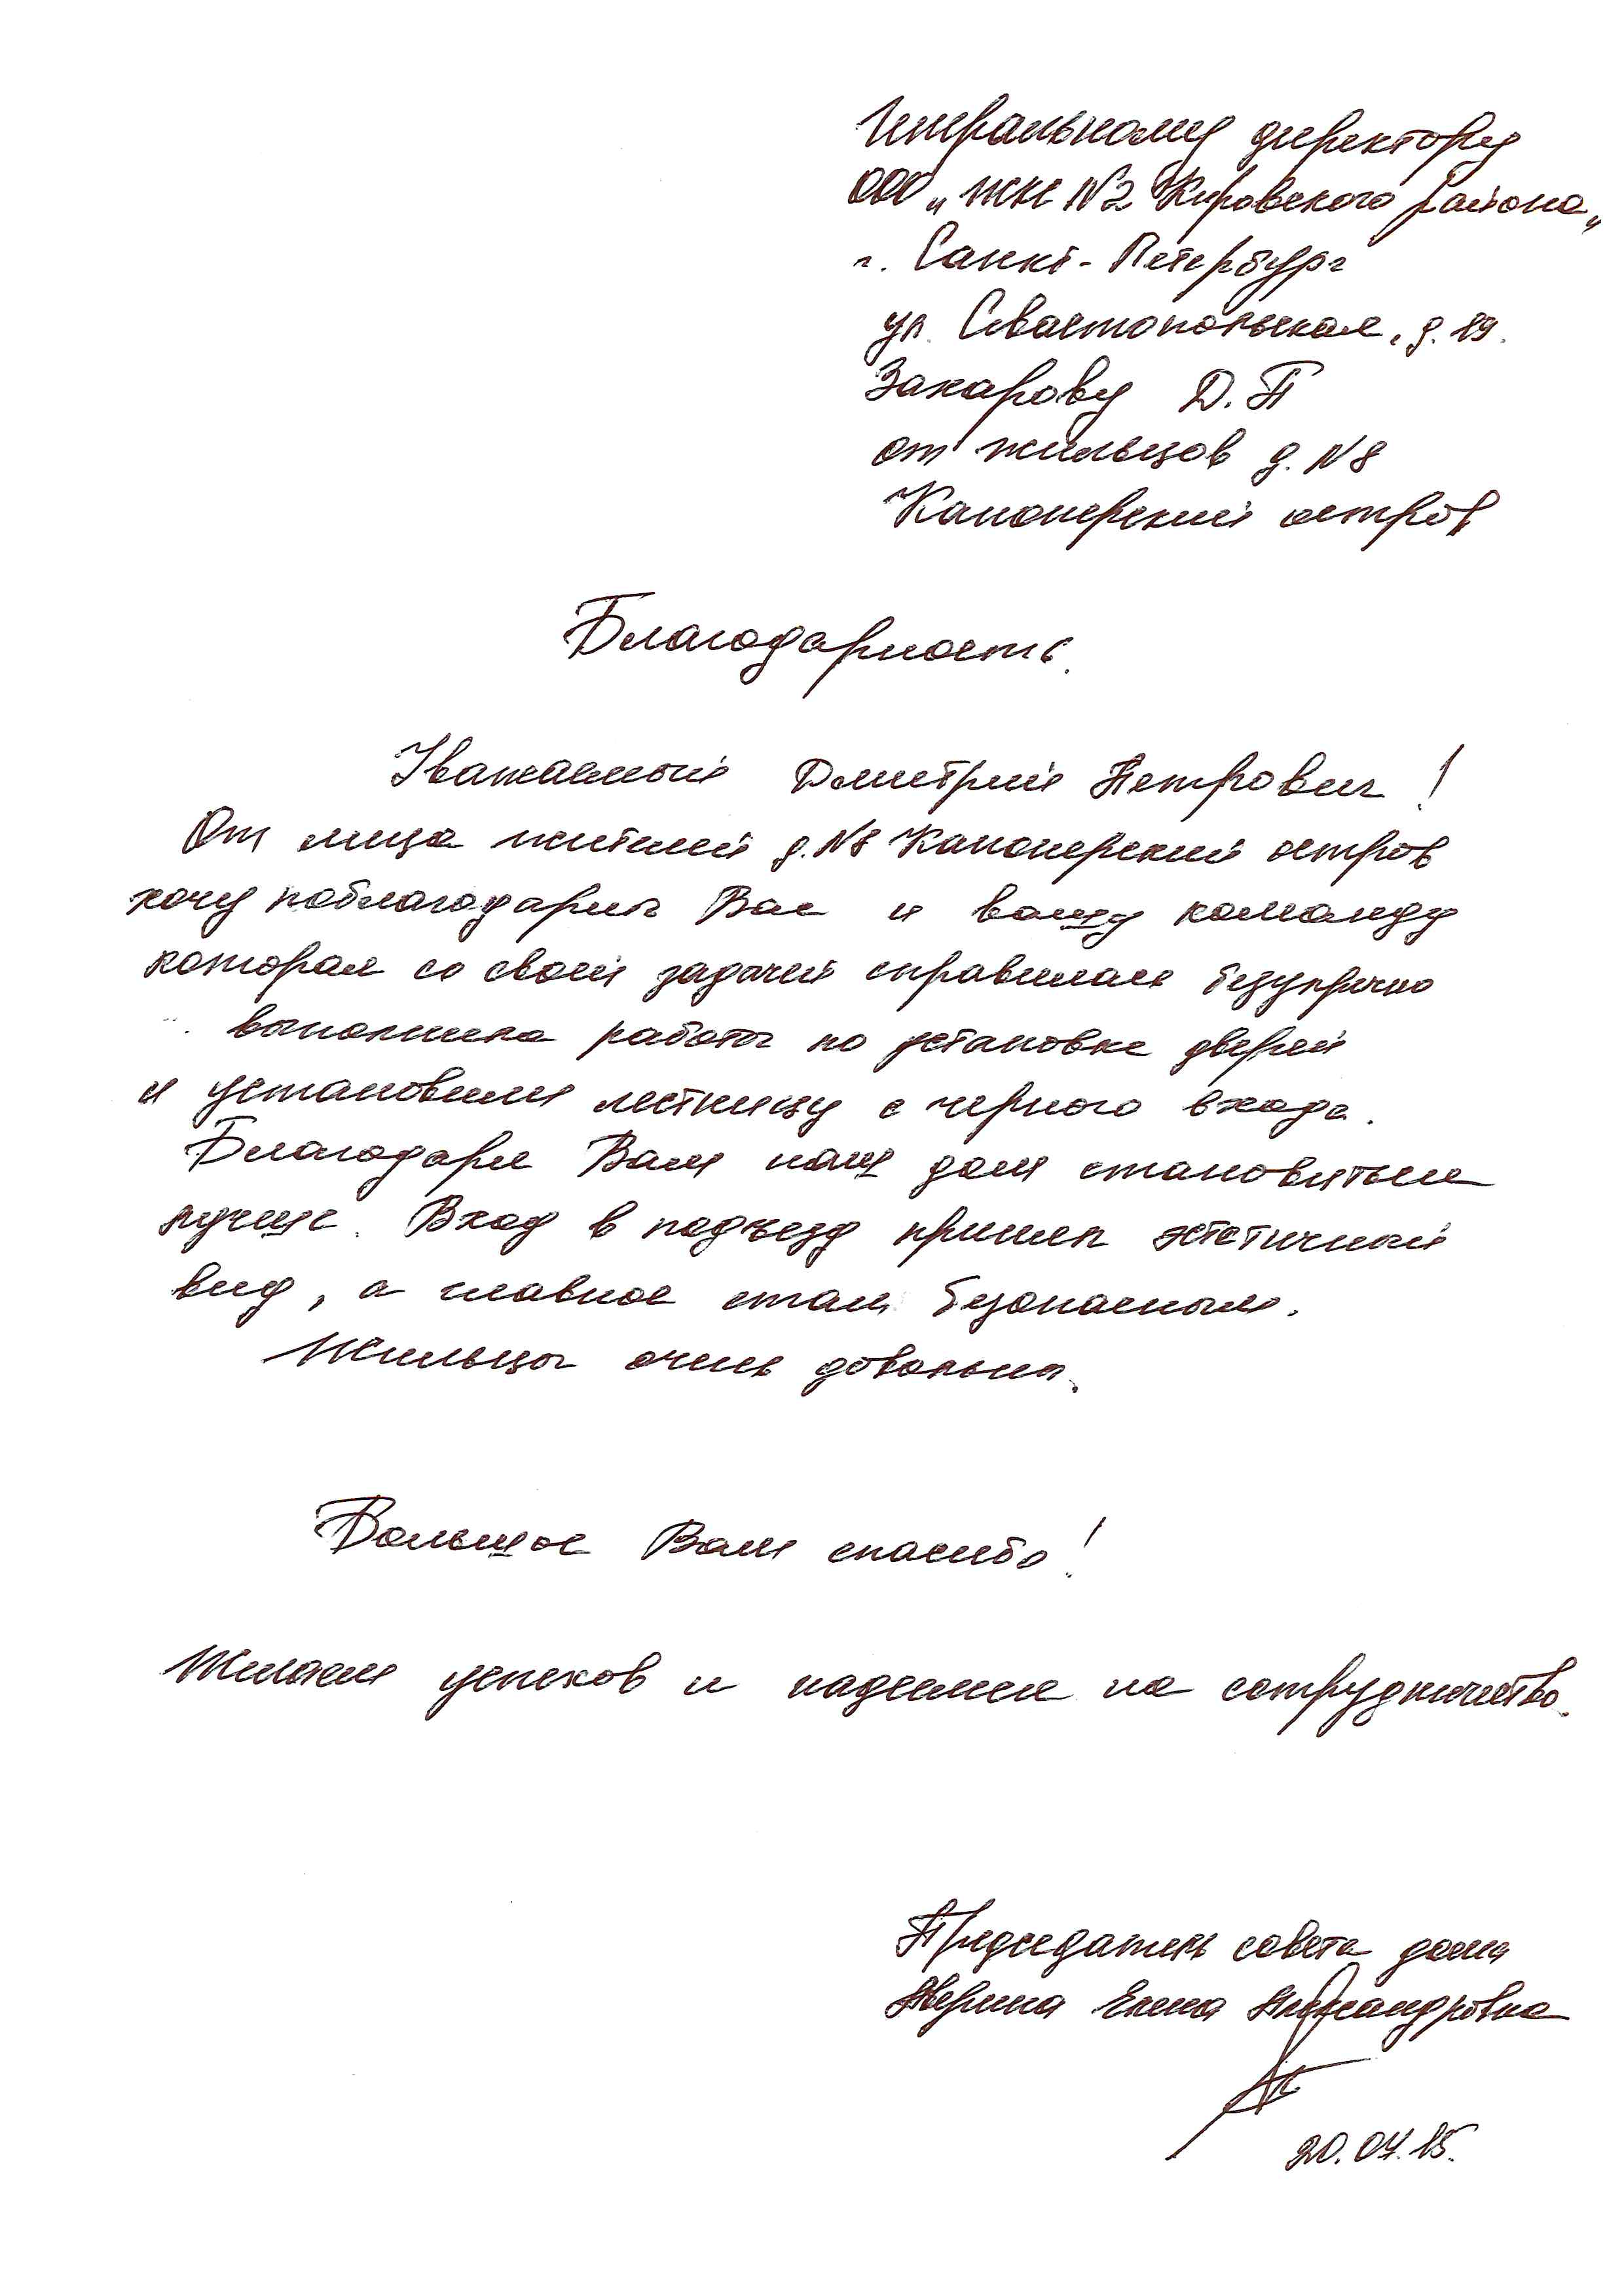 Генеральному директору
ООО „ЖКС №2 Кировского района„
г. Санкт-Петербург
ул. Севастопольская, д. 19.
Захарову Д. П
от жильцов д. №8
Канонерский остров
Благодарность.
Уважаемый Дмитрий Петрович!
От лица жителей д. №8 Канонерский остров
хочу поблагодарить Вас и вашу команду
которая со своей задачей справилась безупречно
выполнила работы по установке дверей
и установили лестницу с черного входа.
Благодаря Вам наш дом становиться
лучше. Вход в подъезд принял эстетичный
вид, а главное стал безопасным.
Жильцы очень довольны.
Большое Вам спасибо!
Желаем успехов и надеемся на сотрудничество.
Председатель совета дома
Аверина Елена Александровна
20.07.15.